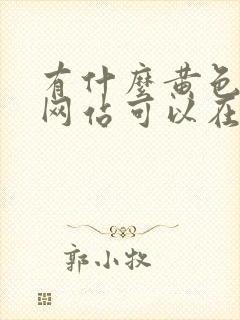 有什麼黄色
网站可以在
郭小牧